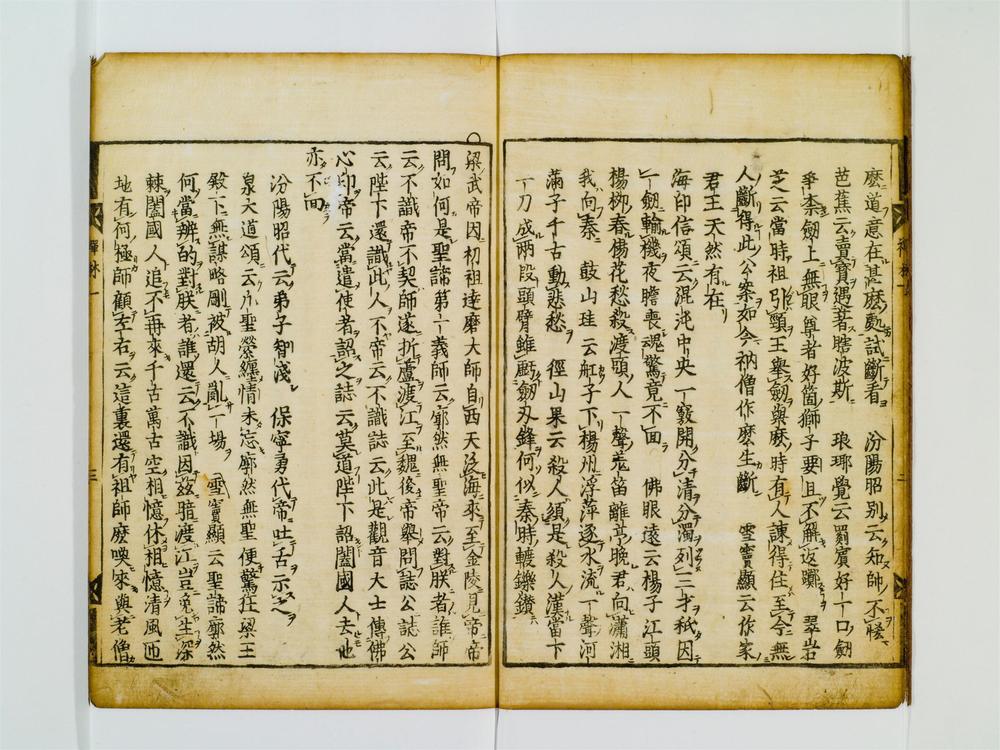 麼道意在甚麼處試斷看　汾陽昭別云知師不恡
芭蕉云賣寶遇著瞎波斯　琅瑘覺云罽賓好一口劒
爭柰劒上無眼尊者好箇獅子要且不解返躑　翠岩
芝云當時祖引頸王舉劒與麼時有人諫得住至今無
人斷得此公案如今衲僧作麼生斷　雪竇顯云作家
君王天然有在
海印信頌云混沌中央一竅開分清分濁列三才秖因
一劒輪機夜膽喪魂驚竟不面　佛眼遠云楊子江頭
楊柳春楊花愁殺渡頭人一聲羗笛離亭晚君向瀟湘
我向秦　鼓山珪云舡子下楊州浮萍逐水流一聲河
滿子千古動悲愁　徑山杲云殺人須是殺人漢當下
一刀成兩段頭臂雖厮劒刃鋒何似秦時轑鑠鑽
梁武帝因初祖達磨大師自西天泛海來至金陵見帝帝
問如何是聖諦第一義師云廓然無聖帝云對朕者誰師
云不識帝不契師遂折蘆渡江至魏後帝舉問誌公誌公
云陛下還識此人不帝云不識誌云此是觀音大士傳佛
心印帝云當遣使者詔之誌云莫道陛下詔闔國人去他
亦不面
汾陽昭代云弟子智淺　保寧勇代帝吐舌示之
泉大道頌云凡聖縈纏情未忘廓然無聖便驚狂梁王
殿下無謀略剛被胡人亂一場　雪竇顯云聖諦廓然
何當辨的對朕者誰還云不識因茲暗渡江豈免生深
棘闔國人追不再來千古萬古空相憶休相憶清風匝
地有何極師顧左右云這裏還有祖師麼喚來與老僧
禪林一
二
禪林一
三